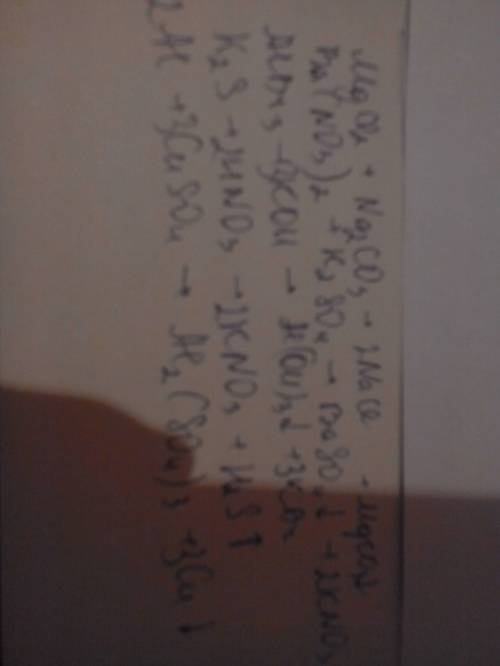 MgCl₂ + Na₂CO₃ → 2NaCl + MgCO₃↓
Ba(NO₃)₂ + K₂SO₄ → BaSO₄↓ + 2KNO₃
→ + 3K
K₂S + 2HNO₃ → 2KNO₃ + H₂S↑
2Al + 3CuSO₄ → Al₂(SO₄)₃ + 3Cu↓